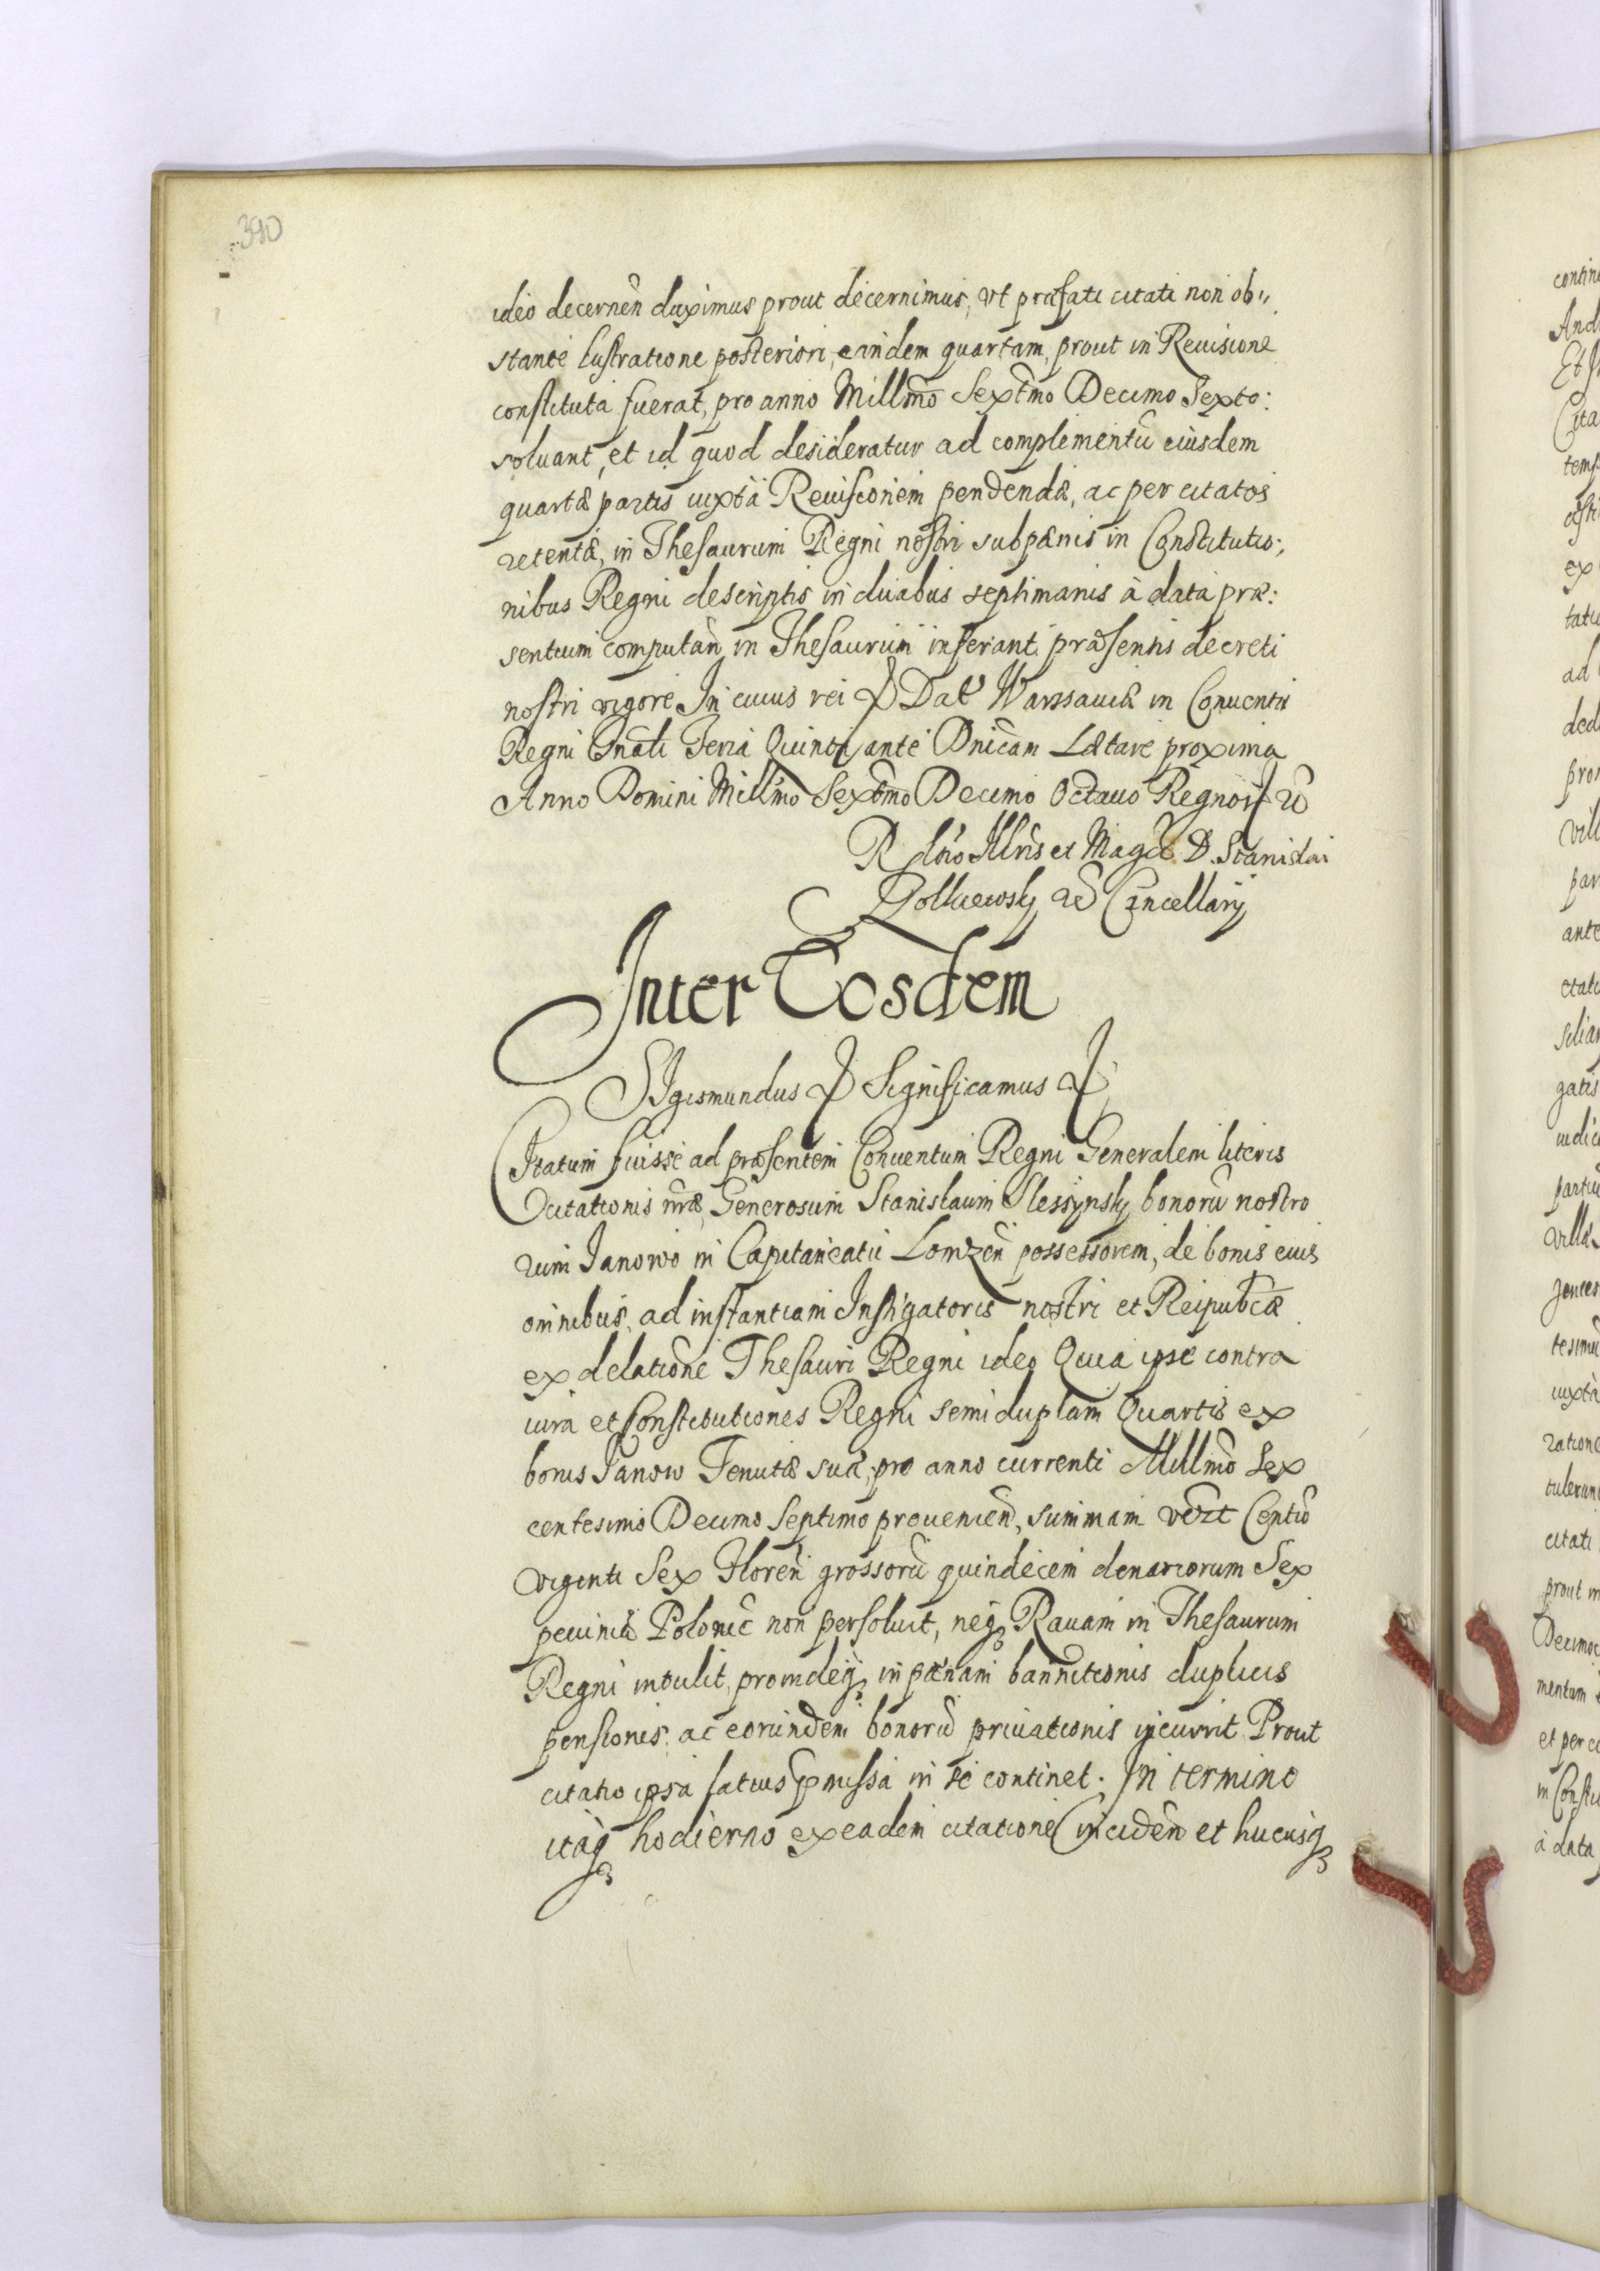 390
ideo decernen̄ duximus prout decernimus, vt præfati citati non ob„
stante lustratione posteriori, eandem quartam, prout in Reuisione
constituta fuerat, pro anno Millmo Sextmo Decimo Sexto:
soluant, et id quod desideratur ad complementū eiusdem
quartæ partis iuxta Reuisionem pendendæ, ac per citatos
retentæ, in Thesaurum Regni nostri sub pænis in Constitutio:,
nibus Regni descriptis in duabus septimanis à data præ:
sentium computan̄ in Thesaurum inferant præsentis decreti
nostri vigore In cuius rei Dat Warssauiæ in Conuentu
Regni Gnāli Feria Quinta ante Dnicam Lætare proxima
Anno Domini Millmo Sextmo Decimo Octauo Regnor
Rlāo Illris et Magci D. Stanislai
Zolkiewsky Cancellarij
Inter Eosdem
SIgismundus Significamus
CItatum fuisse ad præsentem Conuentum Regni Generalem literis
Citationis nræ, Generosum Stanislaum Slessynsky bonorū nostro
rum Ianowo in Capitaneatu Lomzen̄ possessorem, de bonis eius
omnibus, ad instantiam Instigatoris nostri et Reipublcæ
ex delatione Thesauri Regni ideo Quia ipse contra
iura et Constitutiones Regni semiduplam Quartæ ex
bonis Ianow Tenutæ suæ, pro anno currenti Millmo Sex
centesimo Decimo Septimo prouenien̄, summam Centū
viginti Sex Floren̄ grossorū quindecem denariorum Sex
pecuniæ Polonic̄ non persoluit, neq Rauam in Thesaurum
Regni intulit, proindeq in pænam bannitionis duplicis
pensionis, ac eorundem bonorū priuationis incurrit Prout
citatio ipsa latius pmissa in se continet. In termino
itaq hodierno ex eadem citatione inciden̄ et hucusq